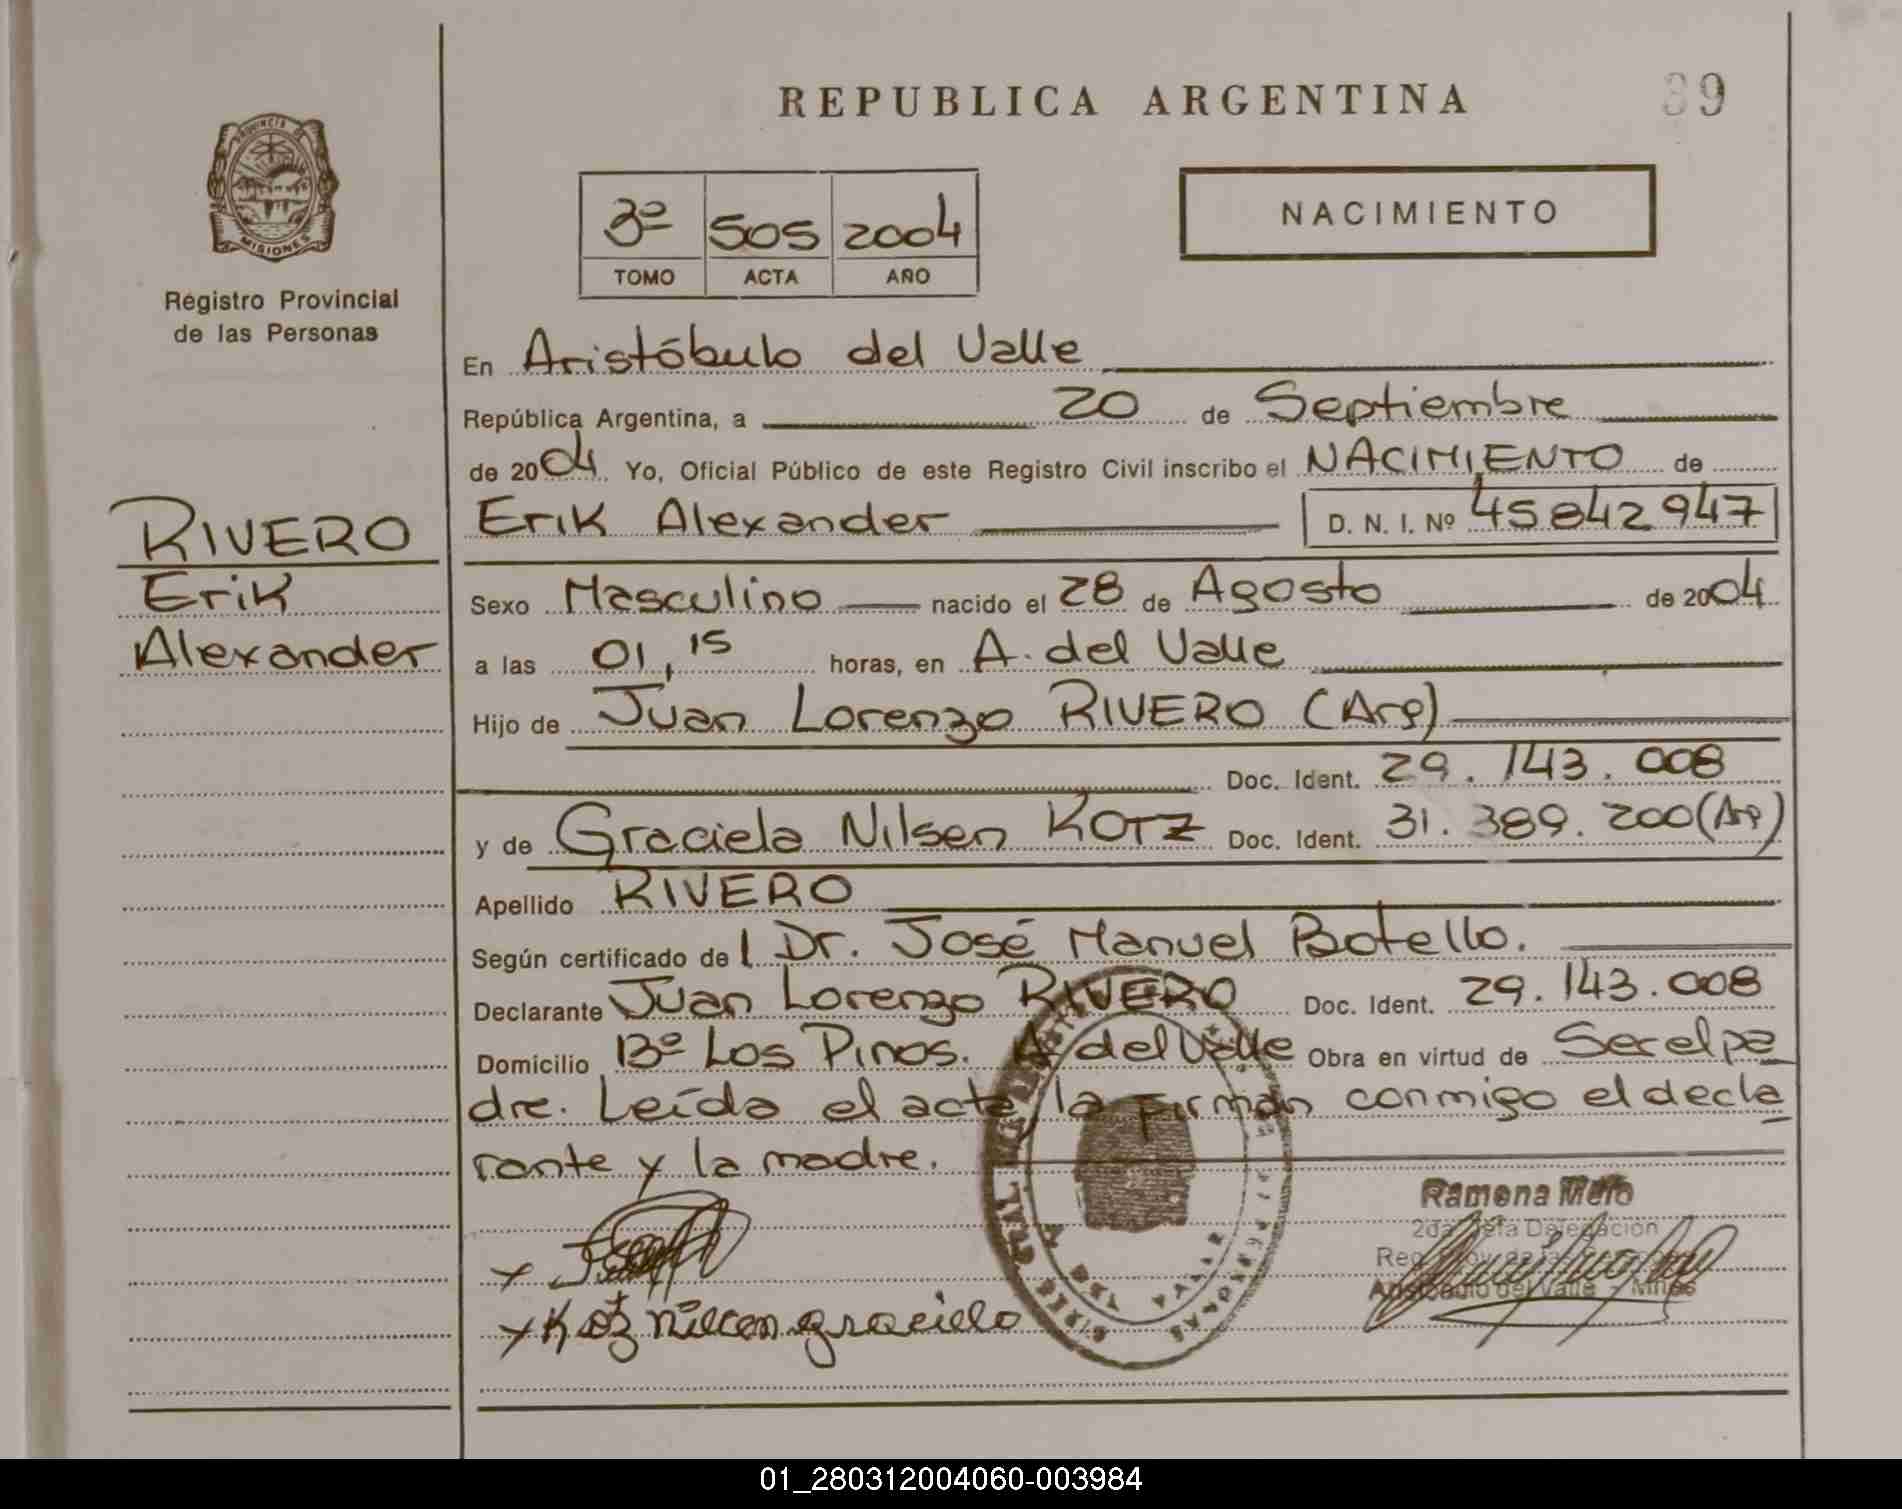 REPUBLICA ARGENTINA
39
PROVINCIA DE
MISIONES
Registro Provincial
de las Personas
3º 505 2004
TOMO ACTA AÑO
NACIMIENTO
En Aristóbulo del Valle
República Argentina, a 20 de Septiembre
de 2004 Yo, Oficial Público de este Registro Civil inscribo el NACIMIENTO de
Erik Alexander D. N. I. Nº 45842947
RIVERO
Erik
Alexander
Sexo Masculino nacido el 28 de Agosto de 2004
a las 01,15 horas, en A. del Valle
Hijo de Juan Lorenzo RIVERO (Arg)
Doc. Ident. 29.143.008
y de Graciela Nilsen KOTZ Doc. Ident. 31.389.200 (Arg)
Apellido RIVERO
Según certificado de l Dr. José Manuel Botello.
Declarante Juan Lorenzo RIVERO Doc. Ident. 29.143.008
Domicilio Bº Los Pinos. A del Valle Obra en virtud de Ser el pa
dre. Leída el acta, la firman conmigo el decla
rante y la madre.
Ramona Melo
2da Jefa Delegación
Reg. Prov. de las Personas
Aristóbulo del Valle - Mnes
x
x Kotz nilcen graciela
DEL VALLE
01_280312004060-003984